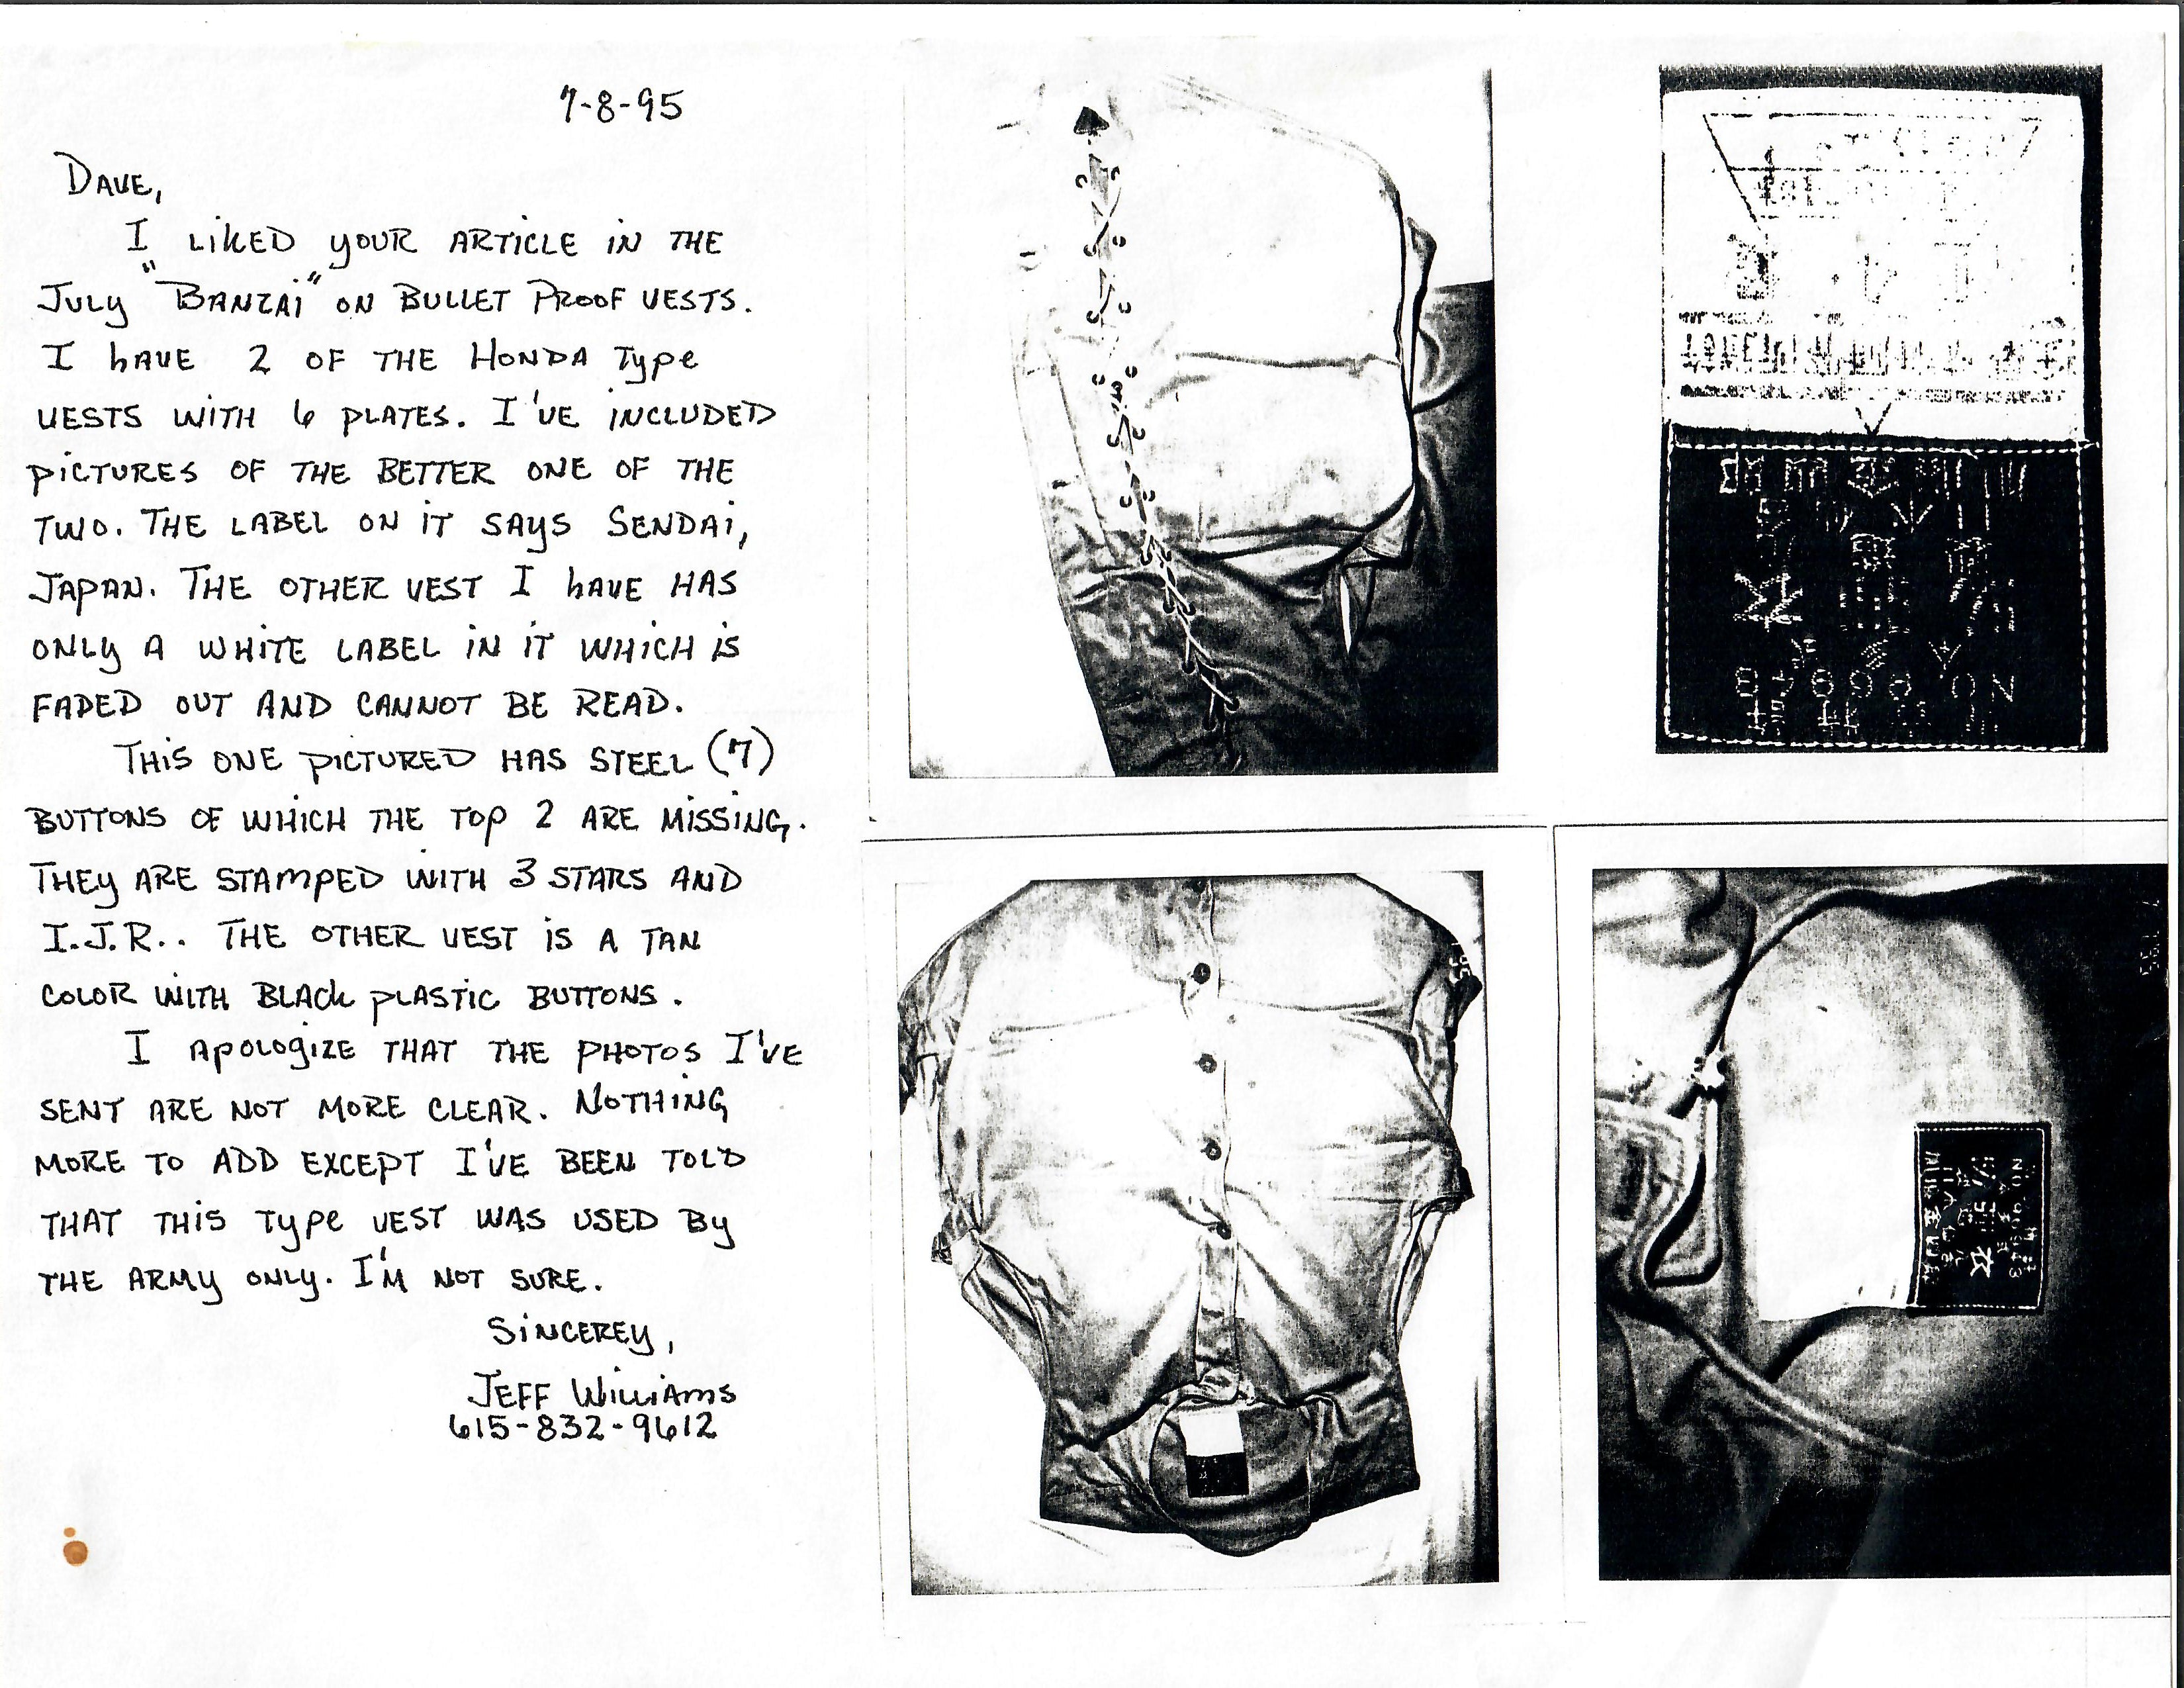 7-8-95
DAVE,
I LIKED YOUR ARTICLE IN THE
JULY "BANZAI" ON BULLET PROOF VESTS.
I HAVE 2 OF THE HONDA TYPE
VESTS WITH 6 PLATES. I'VE INCLUDED
PICTURES OF THE BETTER ONE OF THE
TWO. THE LABEL ON IT SAYS SENDAI,
JAPAN. THE OTHER VEST I HAVE HAS
ONLY A WHITE LABEL IN IT WHICH IS
FADED OUT AND CANNOT BE READ.
THIS ONE PICTURED HAS STEEL (7)
BUTTONS OF WHICH THE TOP 2 ARE MISSING.
THEY ARE STAMPED WITH 3 STARS AND
I.J.R.. THE OTHER VEST IS A TAN
COLOR WITH BLACK PLASTIC BUTTONS.
I APOLOGIZE THAT THE PHOTOS I'VE
SENT ARE NOT MORE CLEAR. NOTHING
MORE TO ADD EXCEPT I'VE BEEN TOLD
THAT THIS TYPE VEST WAS USED BY
THE ARMY ONLY. I'M NOT SURE.
SINCEREY,
JEFF WILLIAMS
615-832-9612